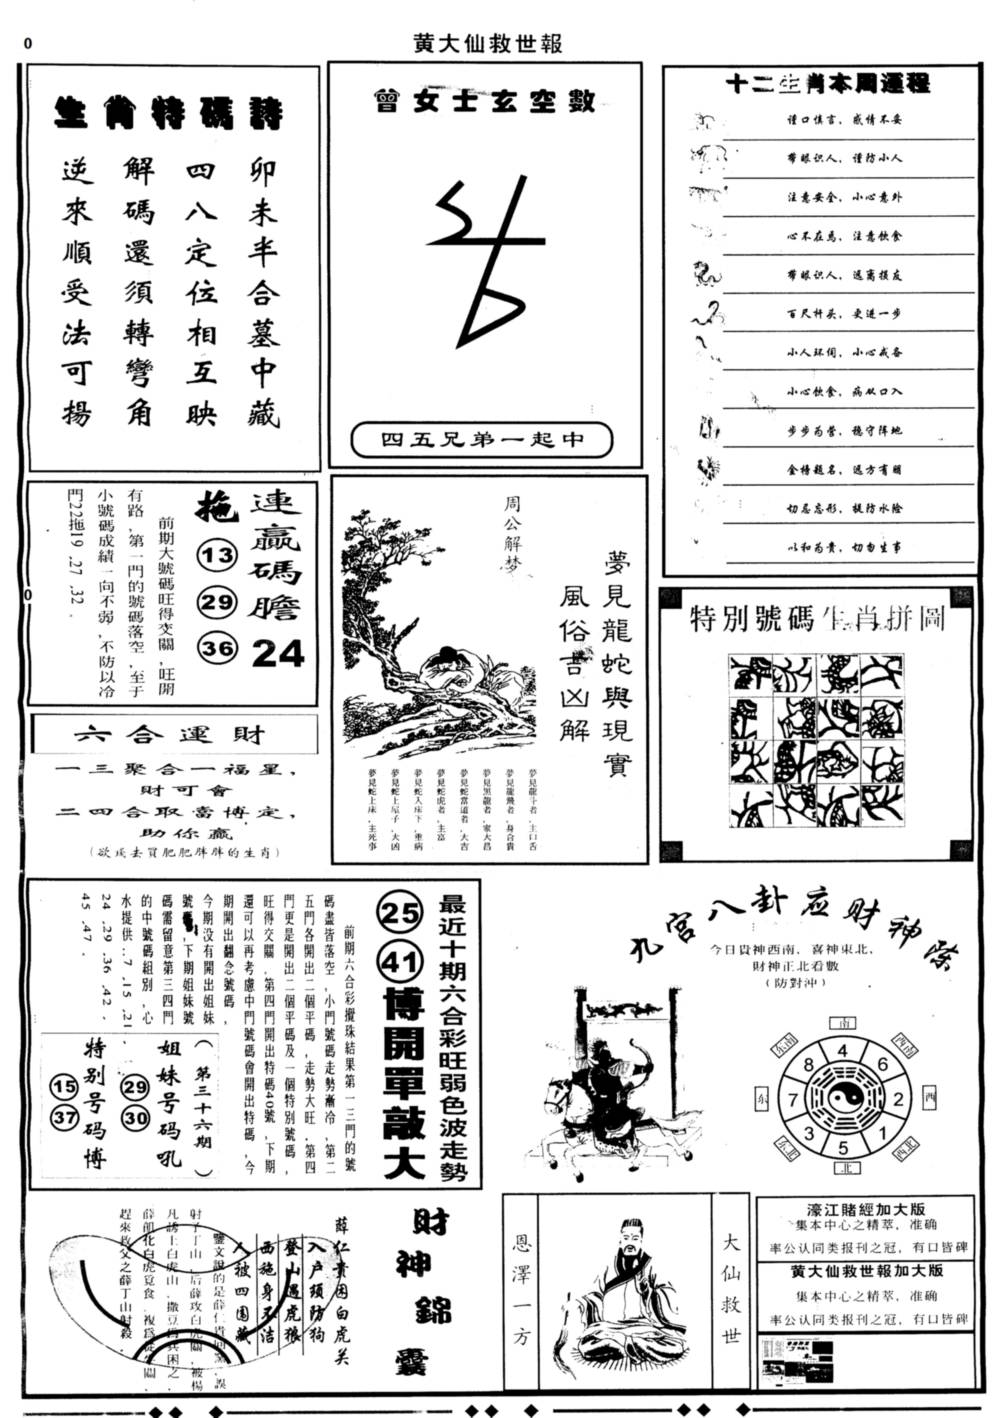 0
黄大仙救世報
生肖特碼詩
卯未半合墓中藏
四八定位相互映
解碼還須轉彎角
逆來順受法可揚
曾女士玄空數
四五兄弟一起中
十二生肖本周運程
谨口慎言，感情不妥
带眼识人，谨防小人
注意安全，小心意外
心不在焉，注意饮食
带眼识人，远离损友
百尺杆头，更进一步
小人环伺，小心戒备
小心饮食，病从口入
步步为营，稳守阵地
金榜题名，远方有朋
切忌忘形，提防水险
以和为贵，切勿生事
連贏碼膽 24
拖 13 29 36
前期大號碼旺得交關,旺開
有路,第一門的號碼落空,至于
小號碼成績一向不弱,不防以冷
門22拖19.27.32.
0
周公解梦
夢見龍蛇與現實
風俗吉凶解
夢見龍斗者,主口舌
夢見龍飛者,身合貴
夢見黑龍者,家大昌
夢見蛇當道者,大吉
夢見蛇虎者,主富
夢見蛇入床下,重病
夢見蛇上屋子,大凶
夢見蛇上床,主死事
特別號碼生肖拼圖
六合運財
一三聚合一福星，
財可會
二四合取當博定，
助你贏
(欲疾去買肥肥胖胖的生肖)
最近十期六合彩旺弱色波走勢
25 41 博開單敲大
前期六合彩攪珠結果第一三門的號
碼盡皆落空,小門號碼走勢漸冷,第二
五門各開出二個平碼,走勢大旺,第四
門更是開出二個平碼及一個特別號碼,
旺得交關.第四門開出特碼40號,下期
還可以再考慮中門號碼會開出特碼,今
期開出翻念號碼,
今期没有開出姐妹
號碼,下期姐妹號
碼需留意第三四門
的中號碼組別,心
水提供:.7.15.21
24.29.36.42.
45.47.
(第三十六期)
姐妹号码吼
29 30
特别号码博
15 37
九宫八卦应财神位
今日貴神西南，喜神東北，
財神正北看數
(防對沖)
南
东南
西南
东
西
东北
西北
北
4
6
2
1
5
3
7
8
財神錦囊
薛仁貴困白虎关
入户须防狗
登山遇虎狼
西施身不洁
人被四围藏
鑒文說的是薛仁貴回窯,誤
射子丁山,后薛攻白虎關,被楊
凡誘上白虎山.撒豆爲兵困之.
趕來救父之薛丁山射殺.
恩澤一方
大仙救世
濠江賭經加大版
集本中心之精萃，准确
率公认同类报刊之冠，有口皆碑
黄大仙救世報加大版
集本中心之精萃，准确
率公认同类报刊之冠，有口皆碑